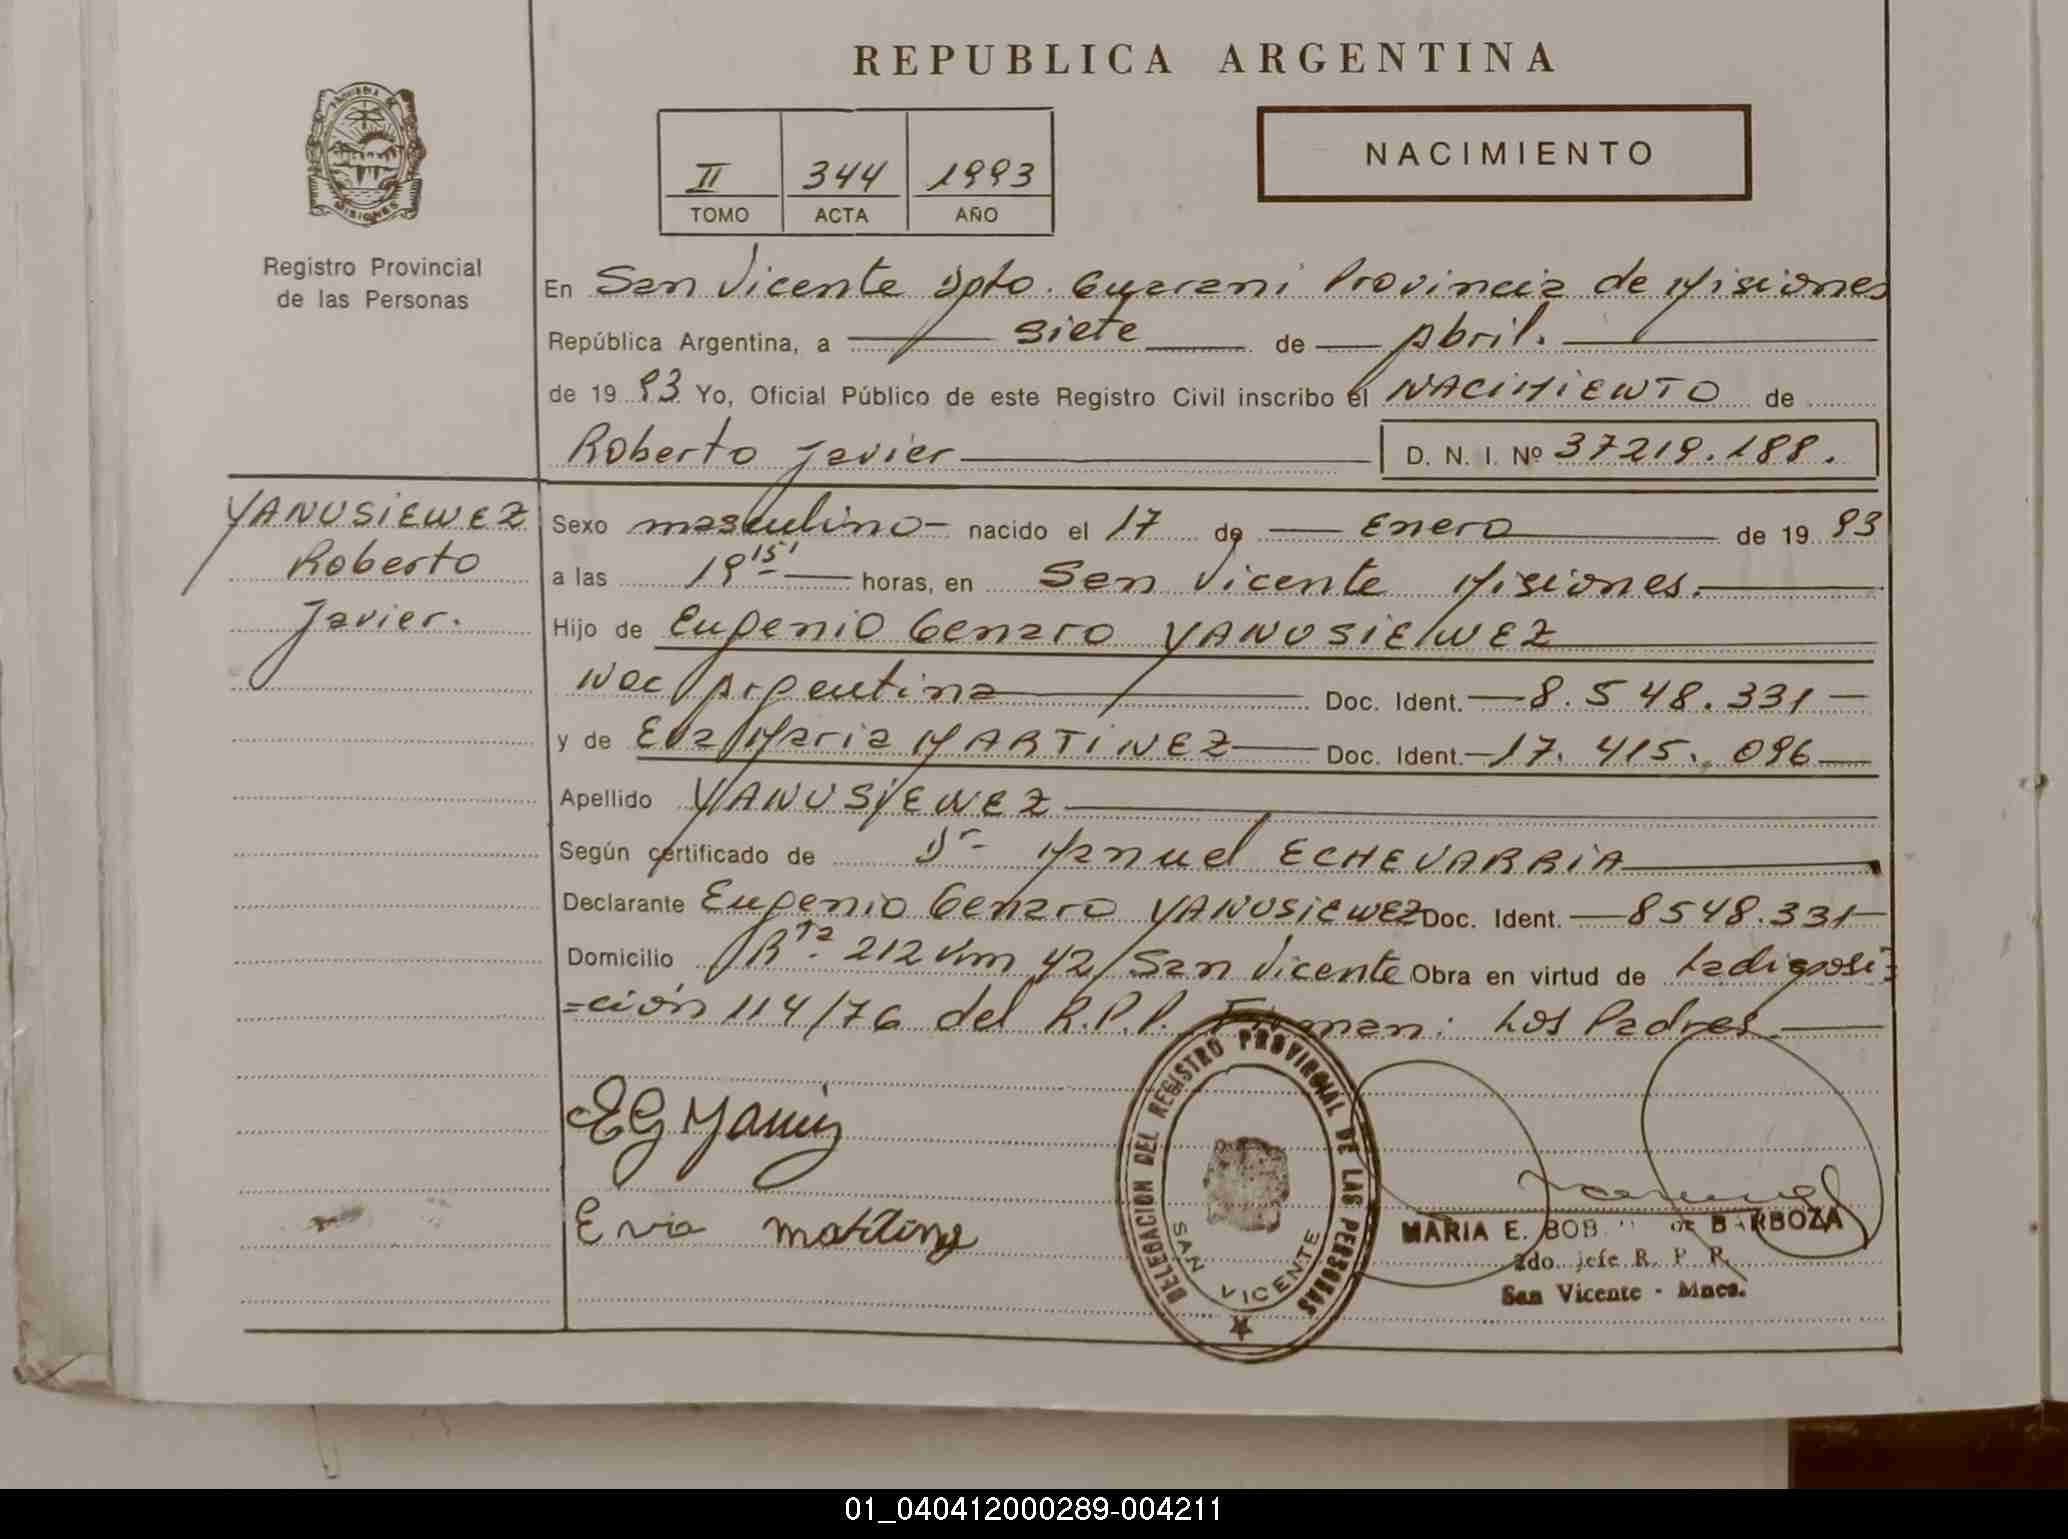 REPUBLICA ARGENTINA
PROVINCIA DE
MISIONES
Registro Provincial
de las Personas
II 344 1993
TOMO ACTA AÑO
NACIMIENTO
En San Vicente Dpto. Guarani Provincia de Misiones
República Argentina, a siete de Abril.
de 1993 Yo, Oficial Público de este Registro Civil inscribo el NACIMIENTO de
Roberto Javier D. N. I. Nº 37219.188.
YANUSIEWEZ
Roberto
Javier.
Sexo masculino - nacido el 17 de Enero de 1993
a las 19 15' horas, en San Vicente Misiones.
Hijo de Eugenio Genaro YANUSIEWEZ
Nac Argentina Doc. Ident. 8.548.331
y de Eva Maria MARTINEZ Doc. Ident. 17.415.096
Apellido YANUSIEWEZ
Según certificado de Dr Manuel ECHEVARRIA
Declarante Eugenio Genaro YANUSIEWEZ Doc. Ident. 8548.331
Domicilio Rta. 212 Km 42 San Vicente Obra en virtud de La disposi=
=ción 114/76 del R.P.P. Firman: Los Padres.
EG
Eva
DELEGACION DEL REGISTRO PROVINCIAL DE LAS PERSONAS
SAN VICENTE
MARIA E. DE BARBOZA
2do. jefe R. P. P.
San Vicente - Mnes.
01_040412000289-004211